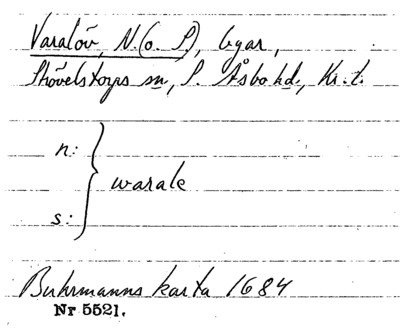 Varalöv, N. (o. S), byar,
Stövelstorps sn, S. Åsbo hd, Kr. l.
n: } warale
s:
Buhrmanns karta 1684
Nr 5521.